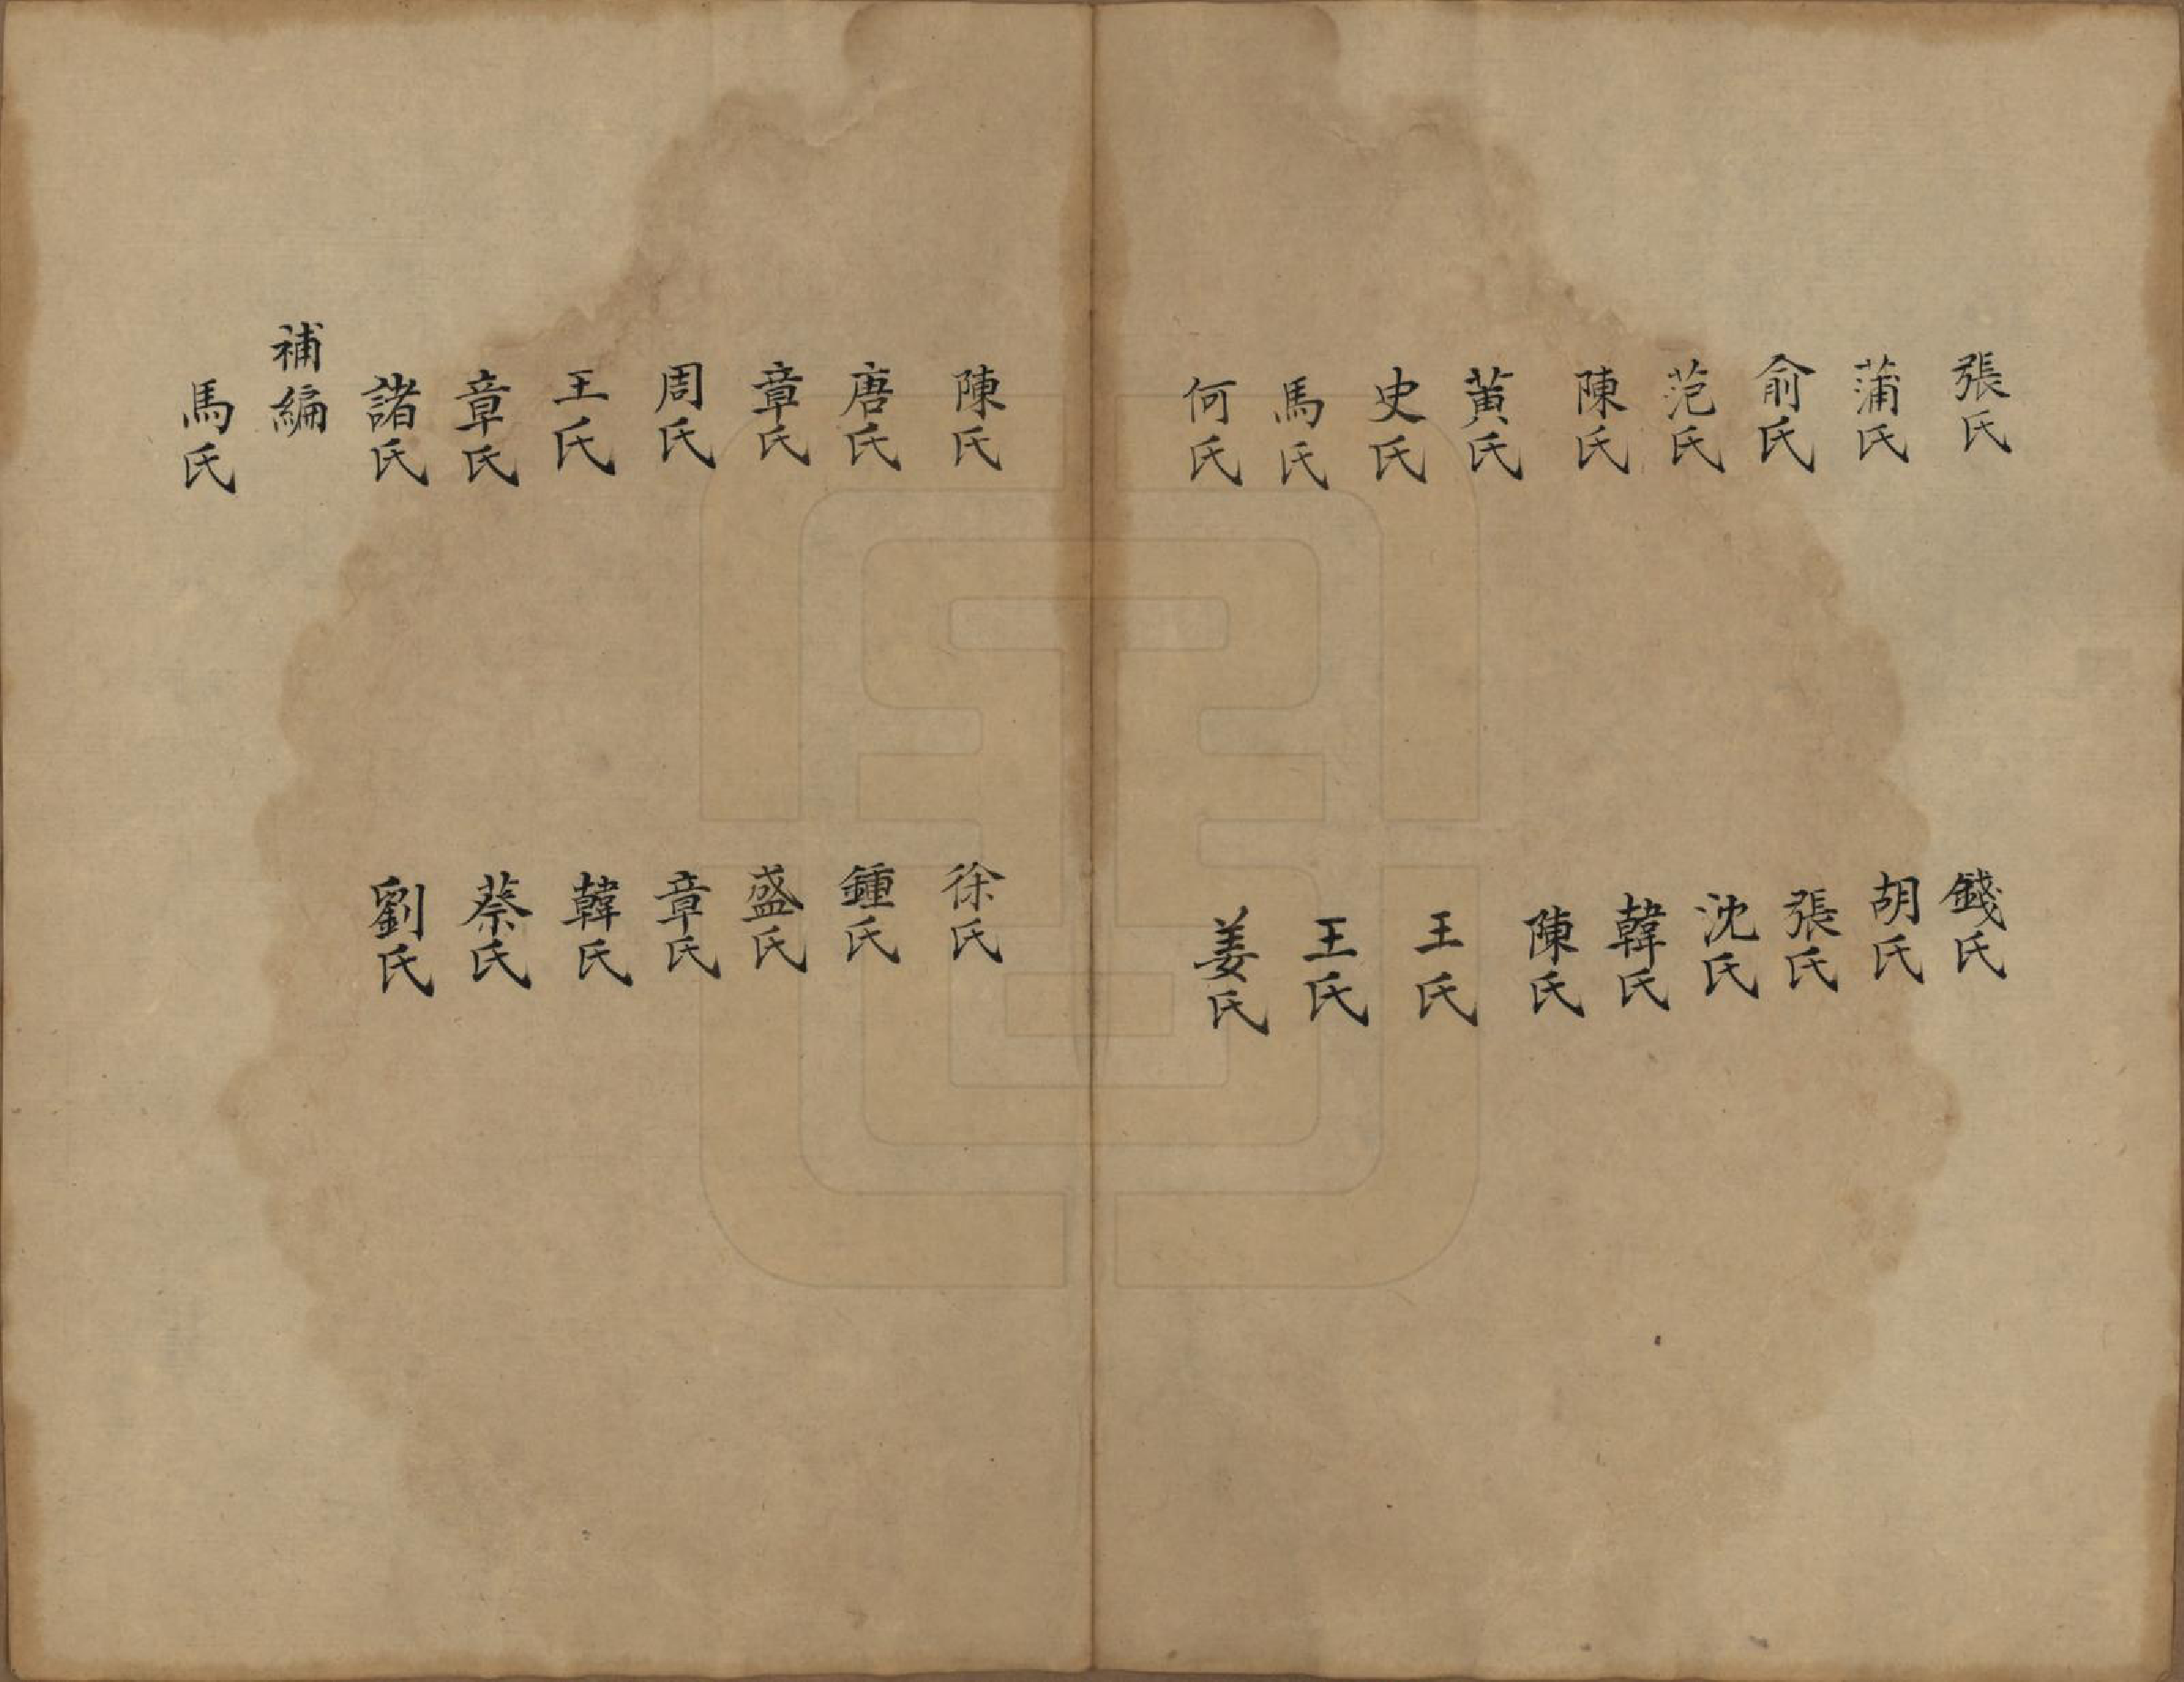 張氏
錢氏
蒲氏
胡氏
俞氏
張氏
范氏
沈氏
陳氏
韓氏
黃氏
陳氏
史氏
王氏
馬氏
王氏
何氏
姜氏
陳氏
徐氏
唐氏
鍾氏
章氏
盛氏
周氏
章氏
王氏
韓氏
章氏
蔡氏
諸氏
劉氏
補編
馬氏